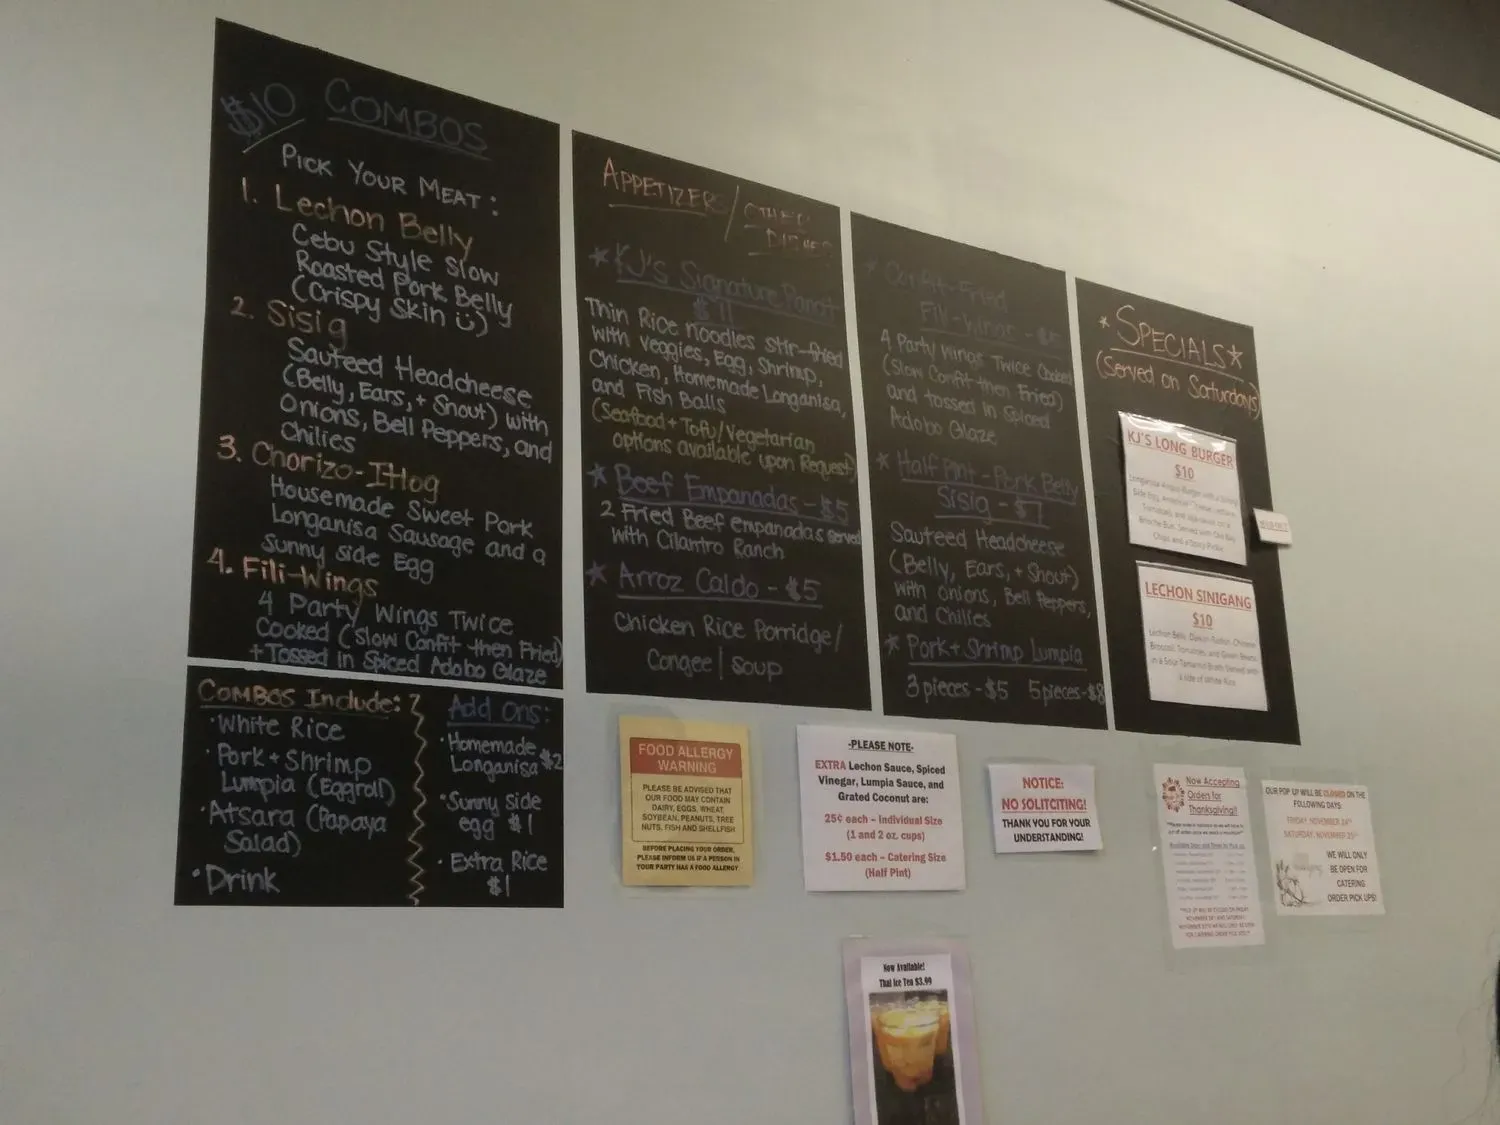 $10 COMBOS
PICK YOUR MEAT:
1. Lechon Belly
Cebu Style Slow
Roasted Pork Belly
(Crispy Skin ü)
2. Sisig
Sauteed Headcheese
(Belly, Ears, + Snout) with
Onions, Bell Peppers, and
Chilies
3. Chorizo-IHog
Housemade Sweet Pork
Longanisa Sausage and a
sunny side Egg
4. Fili-Wings
4 Party Wings Twice
Cooked (Slow Confit then Fried)
+ Tossed in Spiced Adobo Glaze
COMBOS Include:
• White Rice
• Pork + Shrimp
Lumpia (Eggroll)
• Atsara (Papaya
Salad)
• Drink
Add Ons:
• Homemade
Longanisa $2
• Sunny side
egg $1
• Extra Rice
$1
APPETIZERS / OTHER
DISHES
* KJ's Signature Pancit
$11
Thin Rice noodles stir-fried
with veggies, Egg, Shrimp,
Chicken, Homemade Longanisa,
and Fish Balls
(Seafood + Tofu/Vegetarian
options available upon Request)
* Beef Empanadas - $5
2 Fried Beef empanadas served
with Cilantro Ranch
* Arroz Caldo - $5
Chicken Rice Porridge/
Congee/soup
* Confit-Fried
Fili-Wings - $5
4 Party Wings Twice Cooked
(Slow Confit then Fried)
and tossed in Spiced
Adobo Glaze
* Half Pint - Pork Belly
Sisig - $7
Sauteed Headcheese
(Belly, Ears, + Snout)
with onions, Bell Peppers,
and Chilies
* Pork + Shrimp Lumpia
3 pieces - $5 5 pieces - $8
* SPECIALS *
(Served on Saturdays)
KJ'S LONG BURGER
$10
SOLD OUT
LECHON SINIGANG
$10
Lechon Belly, Daikon Radish, Chinese
Broccoli, Tomatoes, and Green Beans
in a Sour Tamarind Broth Served with
a side of White Rice
FOOD ALLERGY
WARNING
PLEASE BE ADVISED THAT
OUR FOOD MAY CONTAIN
DAIRY, EGGS, WHEAT,
SOYBEAN, PEANUTS, TREE
NUTS, FISH AND SHELLFISH
BEFORE PLACING YOUR ORDER,
PLEASE INFORM US IF A PERSON IN
YOUR PARTY HAS A FOOD ALLERGY
-PLEASE NOTE-
EXTRA Lechon Sauce, Spiced
Vinegar, Lumpia Sauce, and
Grated Coconut are:
25¢ each – Individual Size
(1 and 2 oz. cups)
$1.50 each – Catering Size
(Half Pint)
NOTICE:
NO SOLITCITING!
THANK YOU FOR YOUR
UNDERSTANDING!
Now Accepting
Orders for
Thanksgiving!!
OUR POP UP WILL BE CLOSED ON THE
FOLLOWING DAYS:
FRIDAY, NOVEMBER 24TH
SATURDAY, NOVEMBER 25TH
WE WILL ONLY
BE OPEN FOR
CATERING
ORDER PICK UPS!
Now Available!
Thai Ice Tea $3.99